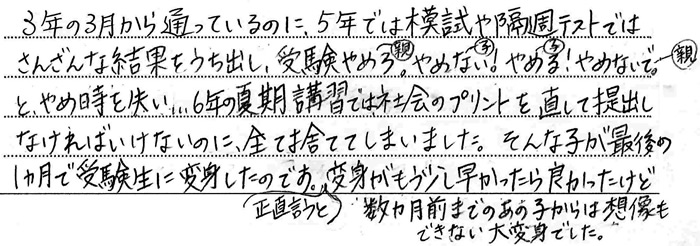 3年の3月から通っているのに、5年では模試や隔週テストでは
さんざんな結果をうち出し、受験やめろ。(親)やめない!(子)やめる!(子)やめないで。(親)
と、やめ時を失い…6年の夏期講習では社会のプリントを直して提出し
なければいけないのに、全て捨ててしまいました。そんな子が最後の
1ヵ月で受験生に変身したのです。変身がもう少し早かったら良かったけど
(正直言うと) 数ヵ月前までのあの子からは想像も
できない大変身でした。